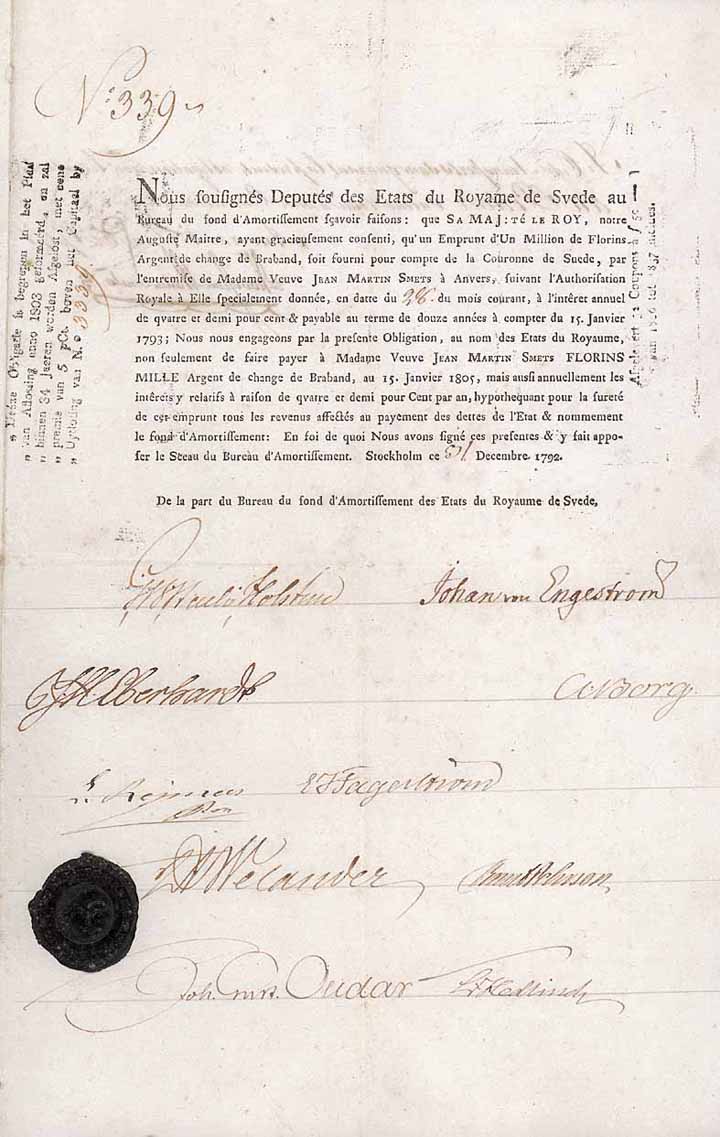 N.º 339
Nous soussignés Deputés des Etats du Royame de Svede au
Bureau du fond d'Amortissement sçavoir faisons: que SA MAJ:TÉ LE ROY, notre
Auguste Maitre, ayant gracieusement consenti, qu'un Emprunt d'Un Million de Florins
Argent de change de Braband, soit fourni pour compte de la Couronne de Suede, par
l'entremise de Madame Veuve JEAN MARTIN SMETS à Anvers, suivant l'Authorisation
Royale à Elle specialement donnée, en datte du 28. du mois courant, à l'intéret annuel
de qvatre et demi pour cent & payable au terme de douze années à compter du 15. Janvier
1793; Nous nous engageons par la presente Obligation, au nom des Etats du Royaume,
non seulement de faire payer à Madame Veuve JEAN MARTIN SMETS FLORINS
MILLE Argent de change de Braband, au 15. Janvier 1805, mais aussi annuellement les
intérêts y relatifs à raison de qvatre et demi pour Cent par an, hypothequant pour la sureté
de cet emprunt tous les revenus affectés au payement des dettes de l'Etat & nommement
le fond d'Amortissement: En foi de quoi Nous avons signé ces presentes & y fait appo-
ser le Sceau du Bureau d'Amortissement. Stockholm ce 31 Decembre. 1792.
De la part du Bureau du fond d'Amortissement des Etats du Royaume de Svede,
„ Deeze Obligatie is begrepen in het Plan
„ van Aflossing anno 1803 geformeerd, en zal
„ binnen 34 jaeren worden Afgelost, met eene
„ premie van 5 pCt. boven het Capitaal by
„ Uytloting van N.o 3339
Holstein
Johan von Engestrom
Eberhardt
Borg
Fagerström
Welander
Joh. Oudar